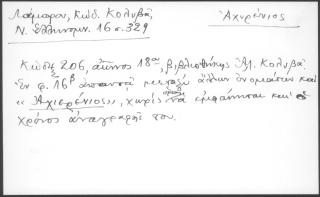 Λάμπρου, Κώδ. Κολυβᾶ,
Ν. Ἑλληνομν. 16 σ. 329
Ἀχυρένιος
Κώδιξ 206, αἰῶνος 18ου, βιβλιοθήκης Ἀλ. Κολυβᾶ
ἐν φ. 16β ἀπαντᾷ μεταξὺ ἄλλων ὀνομάτων καὶ
«Ἀχιερένιος», χωρὶς νὰ ἐμφαίνηται καὶ ὁ
χρόνος ἀναγραφῆς του.